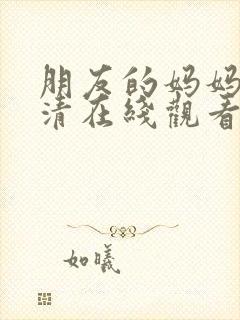 朋友的妈妈
清在线觀看
如曦